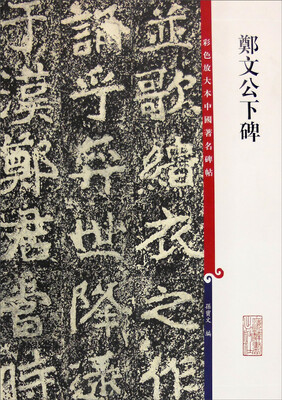 鄭文公下碑
彩色放大本中國著名碑帖
孫寶文 編
並歌緇衣之作
誦乎奕世降逮
于漢鄭君當時